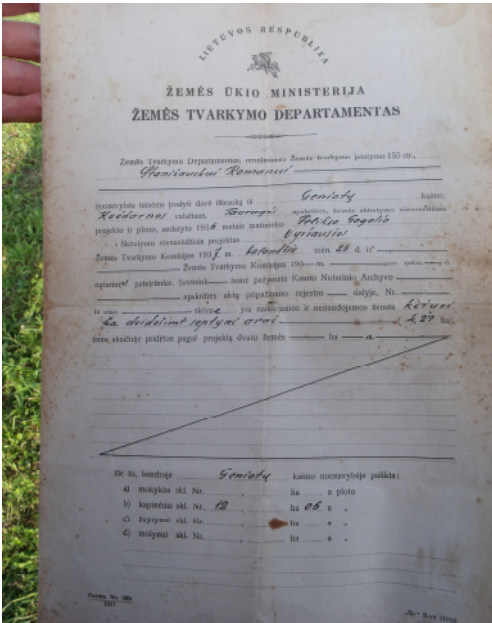 LIETUVOS RESPUBLIKA
ŽEMĖS ŪKIO MINISTERIJA
ŽEMĖS TVARKYMO DEPARTAMENTAS
Žemės Tvarkymo Departamentas, remdamasis Žemės tvarkymo įstatymo 155 str.,
nuosavybės teisėms įrodyti davė ištrauką iš Geniotų kaimo,
valsčiaus, Tauragės apskrities, žemės skirstymo vienasėdžiais
projekto ir plano, sudaryto 1936 metais matininko Felikso
Skirstymo vienasėdžiais projektas Vyriausios
Žemės Tvarkymo Komisijos 1937 m. balandžio mėn. 26 d. ir
Žemės Tvarkymo Komisijos 193 — m. mėn. — d.
nutarimu patvirtintas. žemė pažymėta Kauno Notarinio Archyvo
apskrities aktų pripažinimo rejestro — dalyje, Nr.
sklype yra naudojamos ir nenaudojamos žemės keturi
ha dvidešimt septyni arai (4,27 ha),
pridėtos pagal projektą dvaro žemės — ha — a.
Be to, bendroje Geniotų kaimo nuosavybėje palikta:
a) mokyklai skl. Nr. ha a ploto
b) kapinėms skl. Nr. 12 ha 06 a „
c) žvyrynui skl. Nr. ha a „
d) molynui skl. Nr. ha a „
Forma Nr.